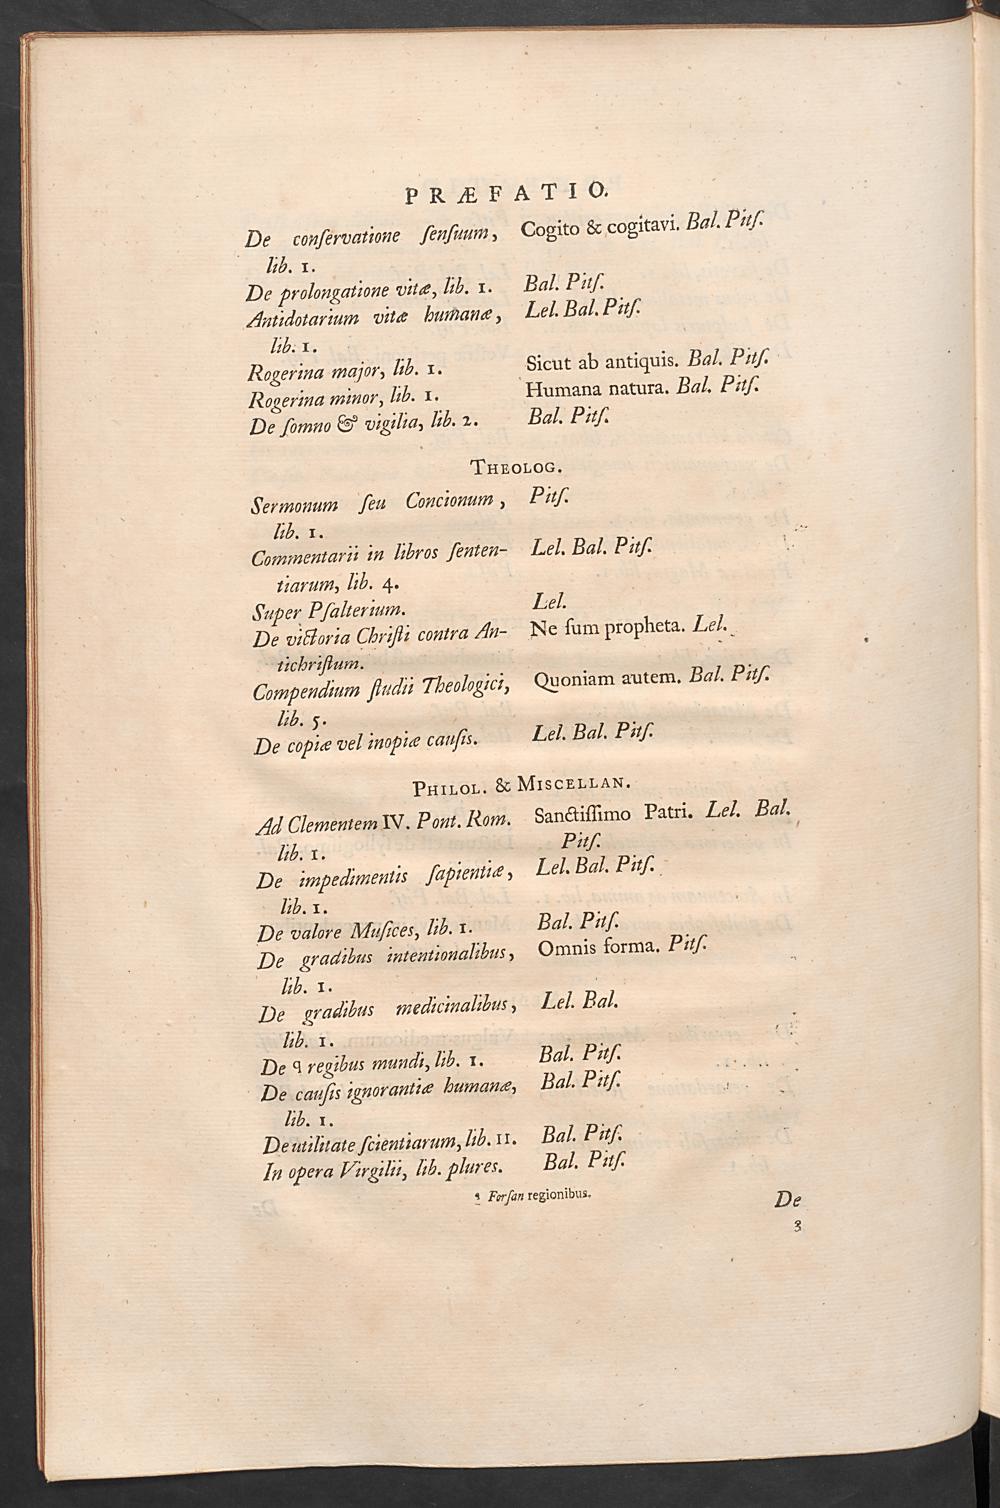 PRÆFATIO.
De conſervatione ſenſuum, Cogito & cogitavi. Bal. Pitſ.
lib. 1.
De prolongatione vitæ, lib. 1. Bal. Pitſ.
Antidotarium vitæ humanæ, Lel. Bal. Pitſ.
lib. 1.
Rogerina major, lib. 1. Sicut ab antiquis. Bal. Pitſ.
Rogerina minor, lib. 1. Humana natura. Bal. Pitſ.
De ſomno & vigilia, lib. 2. Bal. Pitſ.
THEOLOG.
Sermonum ſeu Concionum, Pitſ.
lib. 1.
Commentarii in libros ſenten- Lel. Bal. Pitſ.
tiarum, lib. 4.
Super Pſalterium. Lel.
De victoria Chriſti contra An- Ne ſum propheta. Lel.
tichriſtum.
Compendium ſtudii Theologici, Quoniam autem. Bal. Pitſ.
lib. 5.
De copiæ vel inopiæ cauſis. Lel. Bal. Pitſ.
PHILOL. & MISCELLAN.
Ad Clementem IV. Pont. Rom. Sanctiſſimo Patri. Lel. Bal.
lib. 1. Pitſ.
De impedimentis ſapientiæ, Lel. Bal. Pitſ.
lib. 1.
De valore Muſices, lib. 1. Bal. Pitſ.
De gradibus intentionalibus, Omnis forma. Pitſ.
lib. 1.
De gradibus medicinalibus, Lel. Bal.
lib. 1.
De q regibus mundi, lib. 1. Bal. Pitſ.
De cauſis ignorantiæ humanæ, Bal. Pitſ.
lib. 1.
De utilitate ſcientiarum, lib. 11. Bal. Pitſ.
In opera Virgilii, lib. plures. Bal. Pitſ.
q Forſan regionibus.
De
3